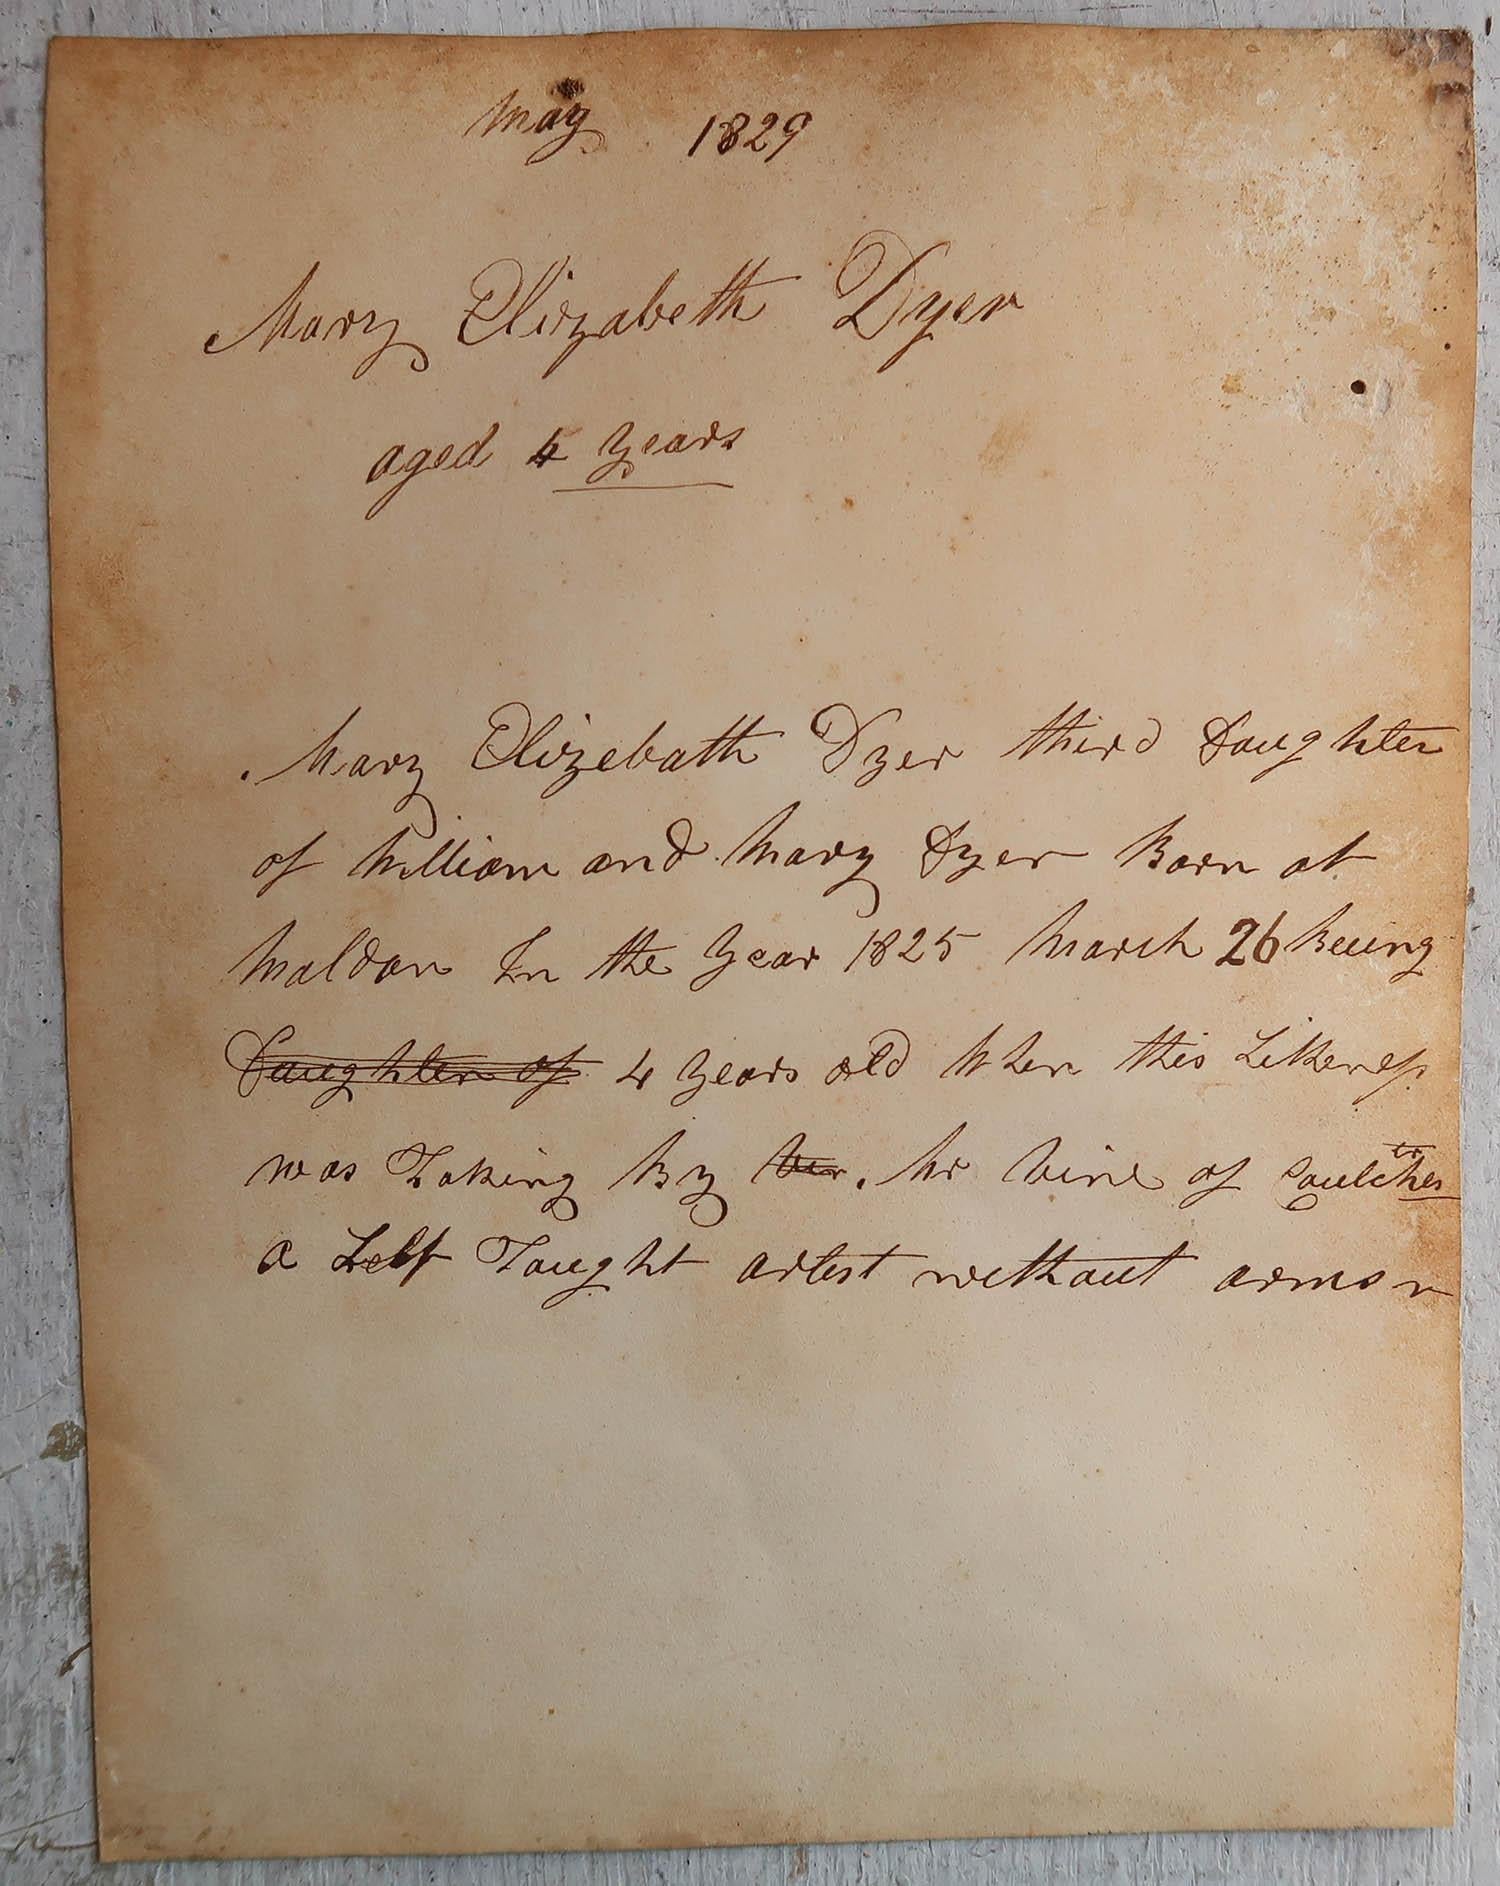 May 1829
Mary Elizabeth Dyer
aged 4 years
Mary Elizebath Dyer third Daughter
of William and Mary Dyer Born at
Maldon In the Year 1825 March 26 Beeing
Daughter of 4 Years old When this Likeness
was Taking By Mr Vine of
a Self Taught artest without arms